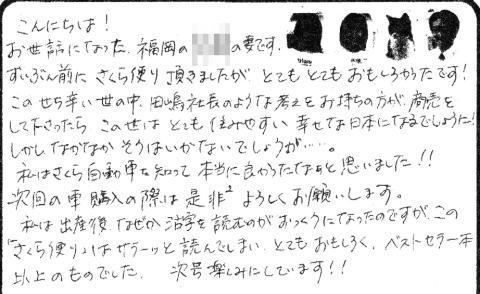 こんにちは!
お世話になった、福岡の の妻です。
ずいぶん前に さくら便り頂きましたが とてもとてもおもしろかったです!
このせち辛い世の中、田嶋社長のような考えをお持ちの方が、商売を
して下さったら この世は とても 住みやすい 幸せな日本になるでしょうに!
しかし なかなか そうはいかないでしょうが……。
私はさくら自動車を知って 本当に良かったなぁと思いました!!
次回の車購入の際は是非² よろしくお願いします。
私は出産後、なぜか活字を読むのがおっくうになったのですが、この
「さくら便り」はサラーッと読んでしまい、とてもおもしろく、ベストセラー本
以上のものでした。 次号楽しみにしています!!